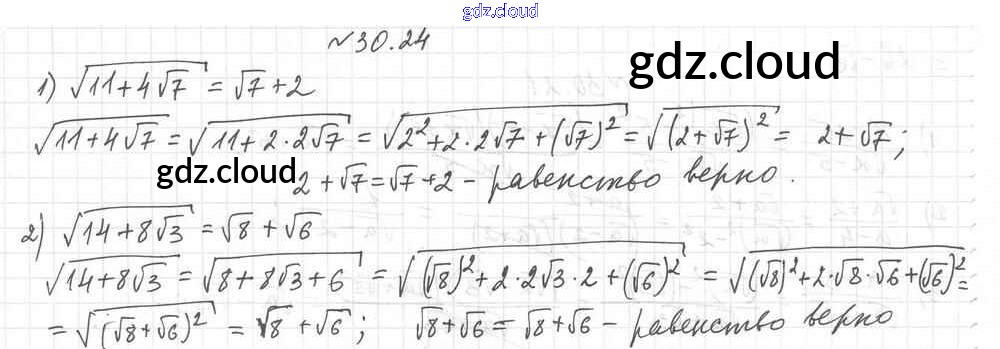 gdz.cloud
№30.24
gdz.cloud
1) √(11+4√7) = √7+2
√(11+4√7) = √(11+2·2√7) = √(2²+2·2√7+(√7)²) = √((2+√7)²) = 2+√7;
gdz.cloud
2+√7=√7+2 – равенство верно.
2) √(14+8√3) = √8+√6
√(14+8√3) = √(8+8√3+6) = √((√8)²+2·2√3·2+(√6)²) = √((√8)²+2·√8·√6+(√6)²) =
= √((√8+√6)²) = √8+√6; √8+√6=√8+√6 – равенство верно